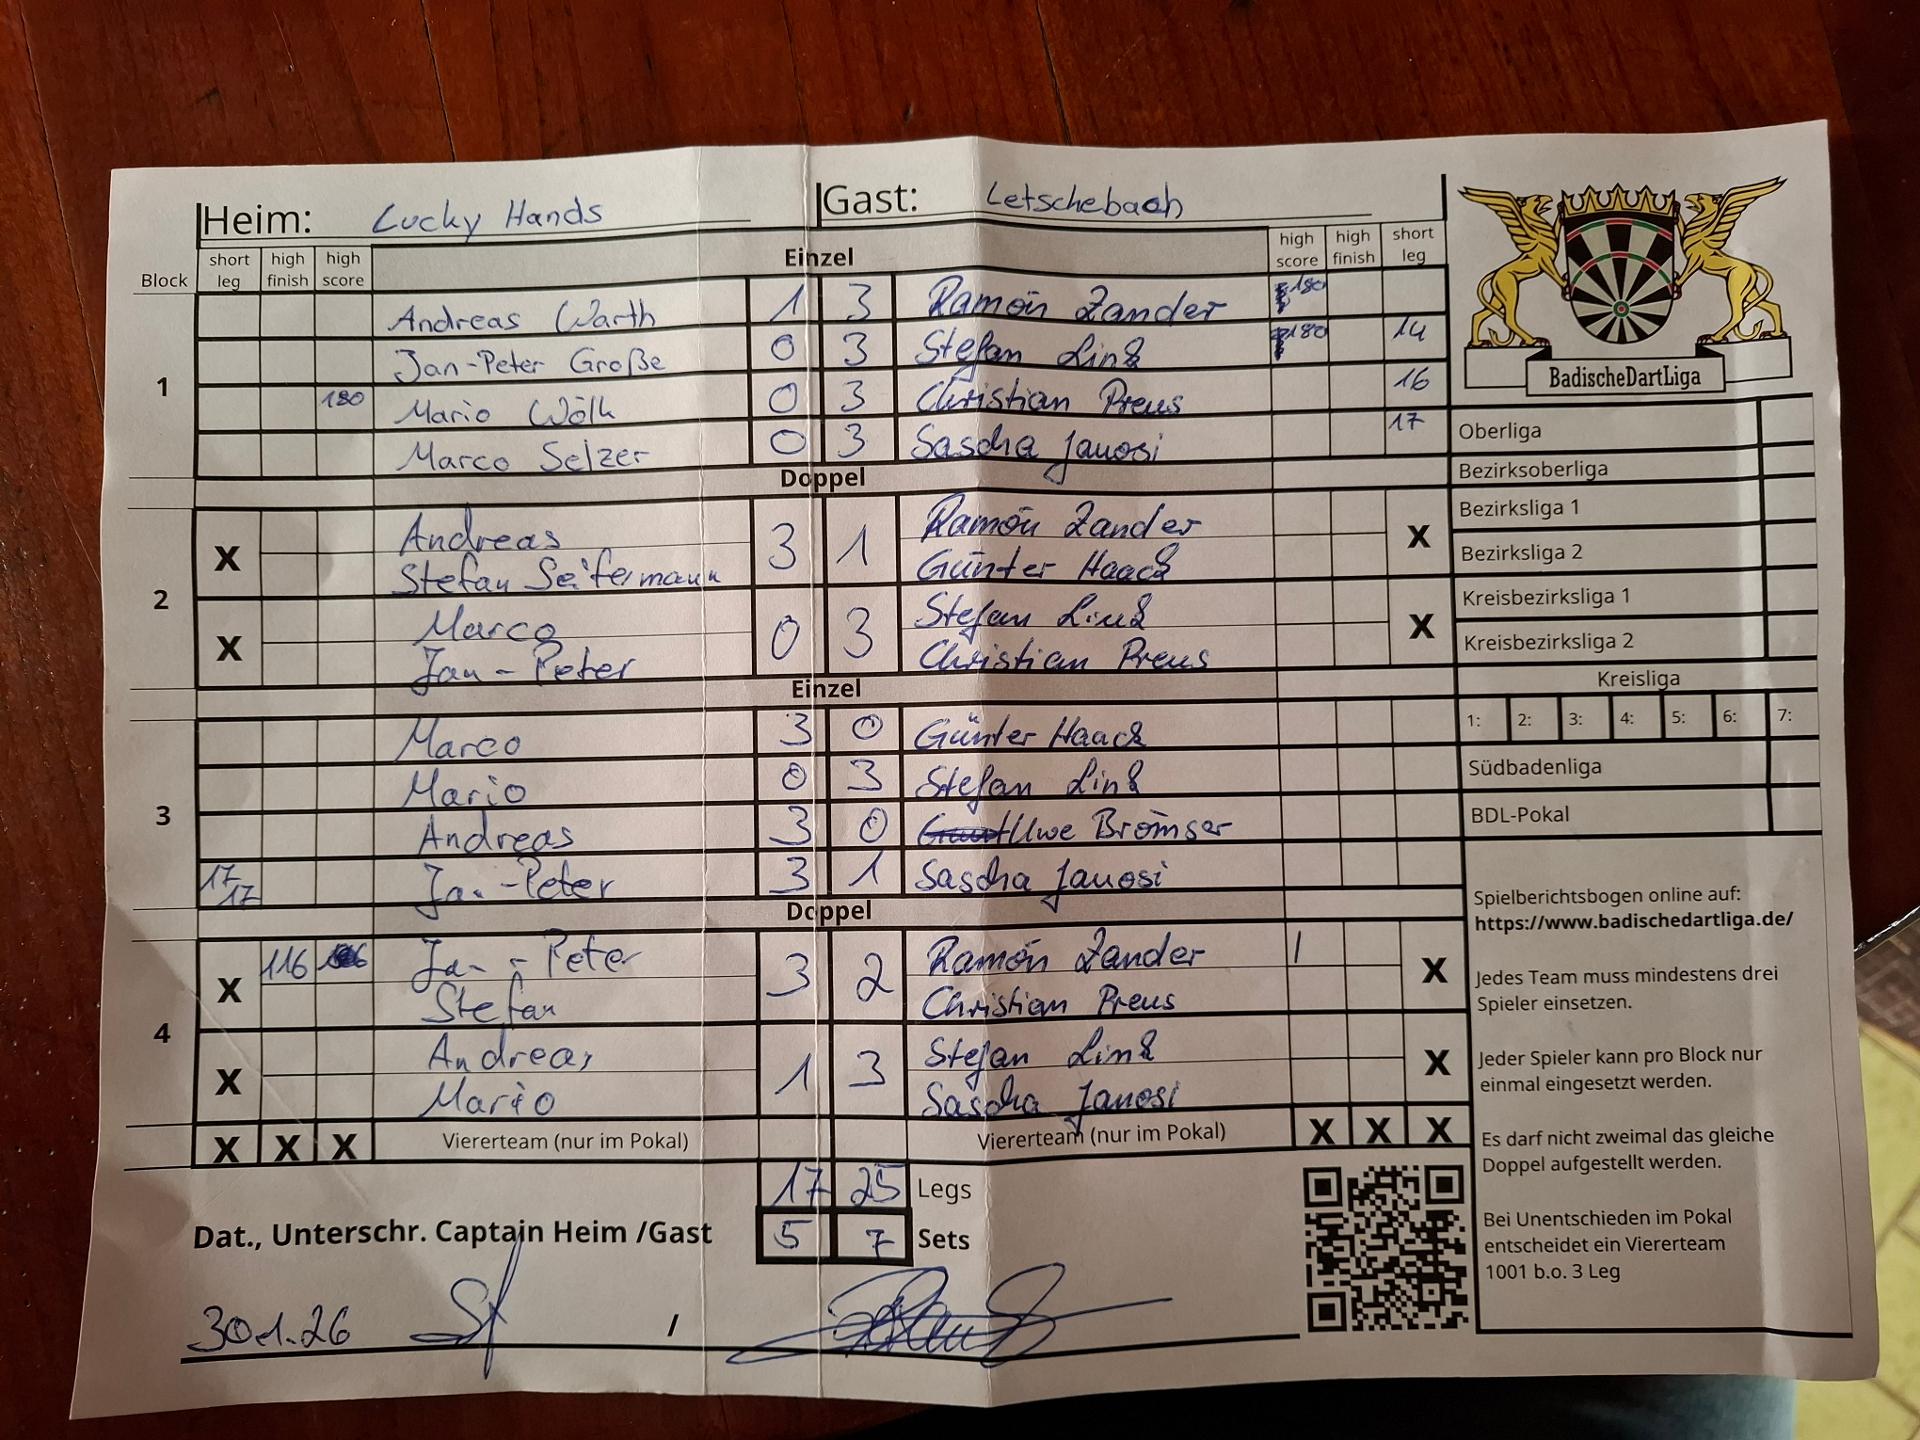 Heim: Lucky Hands Gast: Letschebach
Block short leg high finish high score Einzel high score high finish short leg
1
Andreas Warth 1 3 Ramón Zander 180
Jan-Peter Große 0 3 Stefan Link 180 14
180 Mario Wölk 0 3 Christian Preus 16
Marco Selzer 0 3 Sascha Janosi 17
Doppel
2
X Andreas 3 1 Ramón Zander X
Stefan Seifermann Günter Haack
X Marco 0 3 Stefan Link X
Jan-Peter Christian Preus
Einzel
3
Marco 3 0 Günter Haack
Mario 0 3 Stefan Link
Andreas 3 0 Uwe Bromser
17 17 Jan-Peter 3 1 Sascha Janosi
Doppel
4
X 116 Jan-Peter 3 2 Ramón Zander | X
Stefan Christian Preus
X Andreas 1 3 Stefan Link X
Mario Sascha Janosi
X X X Viererteam (nur im Pokal) Viererteam (nur im Pokal) X X X
17 25 Legs
5 7 Sets
Dat., Unterschr. Captain Heim /Gast
30.1.26 /
BadischeDartLiga
Oberliga
Bezirksoberliga
Bezirksliga 1
Bezirksliga 2
Kreisbezirksliga 1
Kreisbezirksliga 2
Kreisliga
1: 2: 3: 4: 5: 6: 7:
Südbadenliga
BDL-Pokal
Spielberichtsbogen online auf:
https://www.badischedartliga.de/
Jedes Team muss mindestens drei
Spieler einsetzen.
Jeder Spieler kann pro Block nur
einmal eingesetzt werden.
Es darf nicht zweimal das gleiche
Doppel aufgestellt werden.
Bei Unentschieden im Pokal
entscheidet ein Viererteam
1001 b.o. 3 Leg